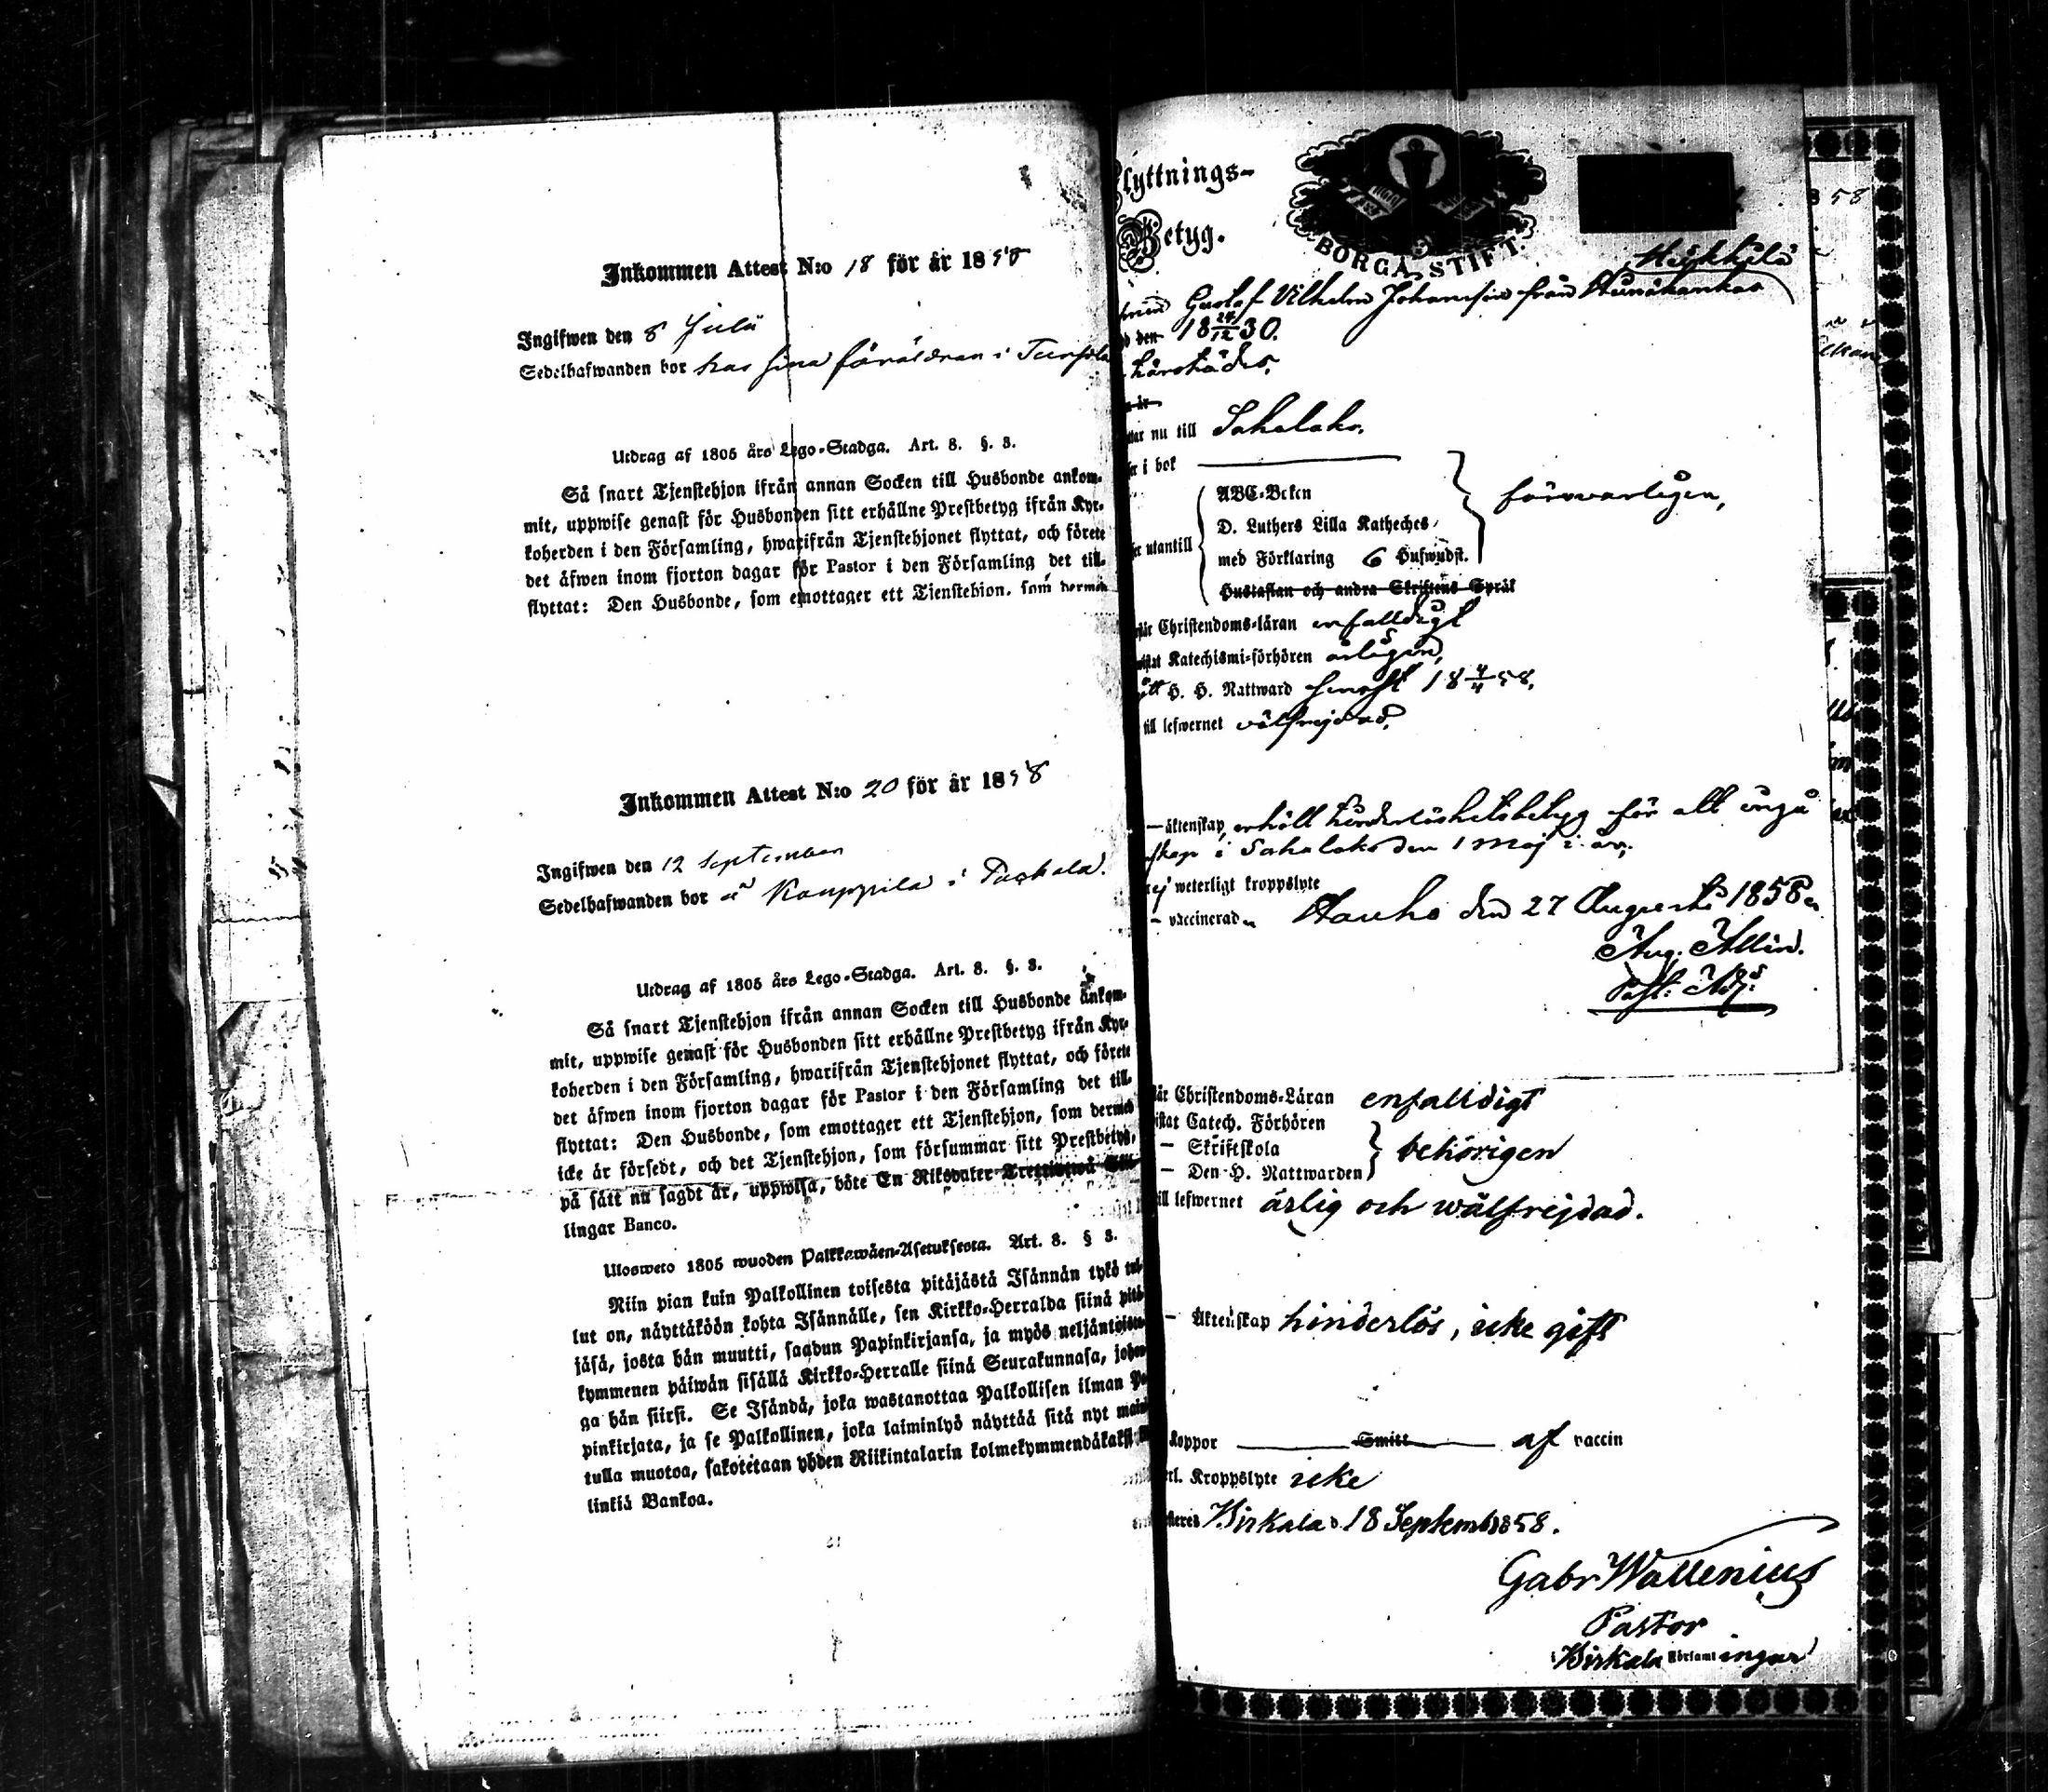 Inkommen Attest N:o 18 för år 1858
Ingifwen den 8 Julii
Sedelhafwanden bor hos sina föräldrar i
Utdrag af 1805 års Lego-Stadga. Art. 8. §. 3.
Så snart Tjenstehjon ifrån annan Socken till Husbonde ankom-
mit, uppwise genast för Husbonden sitt erhållne Prestbetyg ifrån Kyr-
koherden i den Församling, hwarifrån Tjenstehjonet flyttat, och förete
det äfwen inom fjorton dagar för Pastor i den Församling det till-
flyttat: Den Husbonde, som emottager ett Tjenstehjon, som dermed
Inkommen Attest N:o 20 för år 1858
Ingifwen den 12 September
Sedelhafwanden bor å Kauppila i
Utdrag af 1805 års Lego-Stadga. Art. 8. §. 3.
Så snart Tjenstehjon ifrån annan Socken till Husbonde ankom-
mit, uppwise genast för Husbonden sitt erhållne Prestbetyg ifrån Kyr-
koherden i den Församling, hwarifrån Tjenstehjonet flyttat, och förete
det äfwen inom fjorton dagar för Pastor i den Församling det till-
flyttat: Den Husbonde, som emottager ett Tjenstehjon, som dermed
icke är försedt, och det Tjenstehjon, som försummar sitt Prestbetyg,
på sätt nu sagdt är, uppwisa, böte En Riksdaler Trettiotwå Skil-
lingar Banco.
Ulosweto 1805 wuoden Palkkawäen-Asetuksesta. Art. 8. § 3.
Niin pian kuin Palkollinen toisesta pitäjästä Isännän tykö tul-
lut on, näyttäköön kohta Isännälle, sen Kirkko-Herralda siinä pitä-
jäsä, josta hän muutti, saadun Papinkirjansa, ja myös neljäntoista-
kymmenen päiwän sisällä Kirkko-Herralle siinä Seurakunnasa, johon-
ga hän siirsi. Se Isändä, joka wastanottaa Palkollisen ilman Pa-
pinkirjata, ja se Palkollinen, joka laiminlyö näyttää sitä nyt maini-
tulla muotoa, sakotetaan yhden Riikintalarin kolmekymmendäkaksi
linkiä Bankoa.
Flyttnings-
Betyg.
BORGÅ STIFT.
Gustaf Vilhelm Johansson från
den 18 24/12 30.
härstädes,
nu till Sahalaks.
i bok
utantill
ABC-Boken
D. Luthers Lilla Katheches
med Förklaring 6 Hufwudst.
Hustaflan och andra Skriftens Språk
försvarligen,
Christendoms-läran enfalldigt
Katechismi-förhören årligen,
H. H. Nattward senast 18 4/4 58.
till lefwernet välfrejdad.
äktenskap, erhöll hinderlöshetsbetyg för att ingå
i Sahalaks den 1 Maj i. år,
ej weterligt kroppslyte
vaccinerad
Hauho den 27 Augusti 1858.
Aug. Allén.
Past: Adj:
Christendoms-Läran enfalldigt
Catech. Förhören
Skriftskola
Den H. Nattwarden
behörigen
till lefwernet ärlig och wälfrejdad.
Äktenskap hinderlös, icke gift
koppor Smitt af vaccin
Kroppslyte icke
Birkala d. 18 Septemb 1858.
Gabr Wallenius
Pastor
i Birkala Församlingar